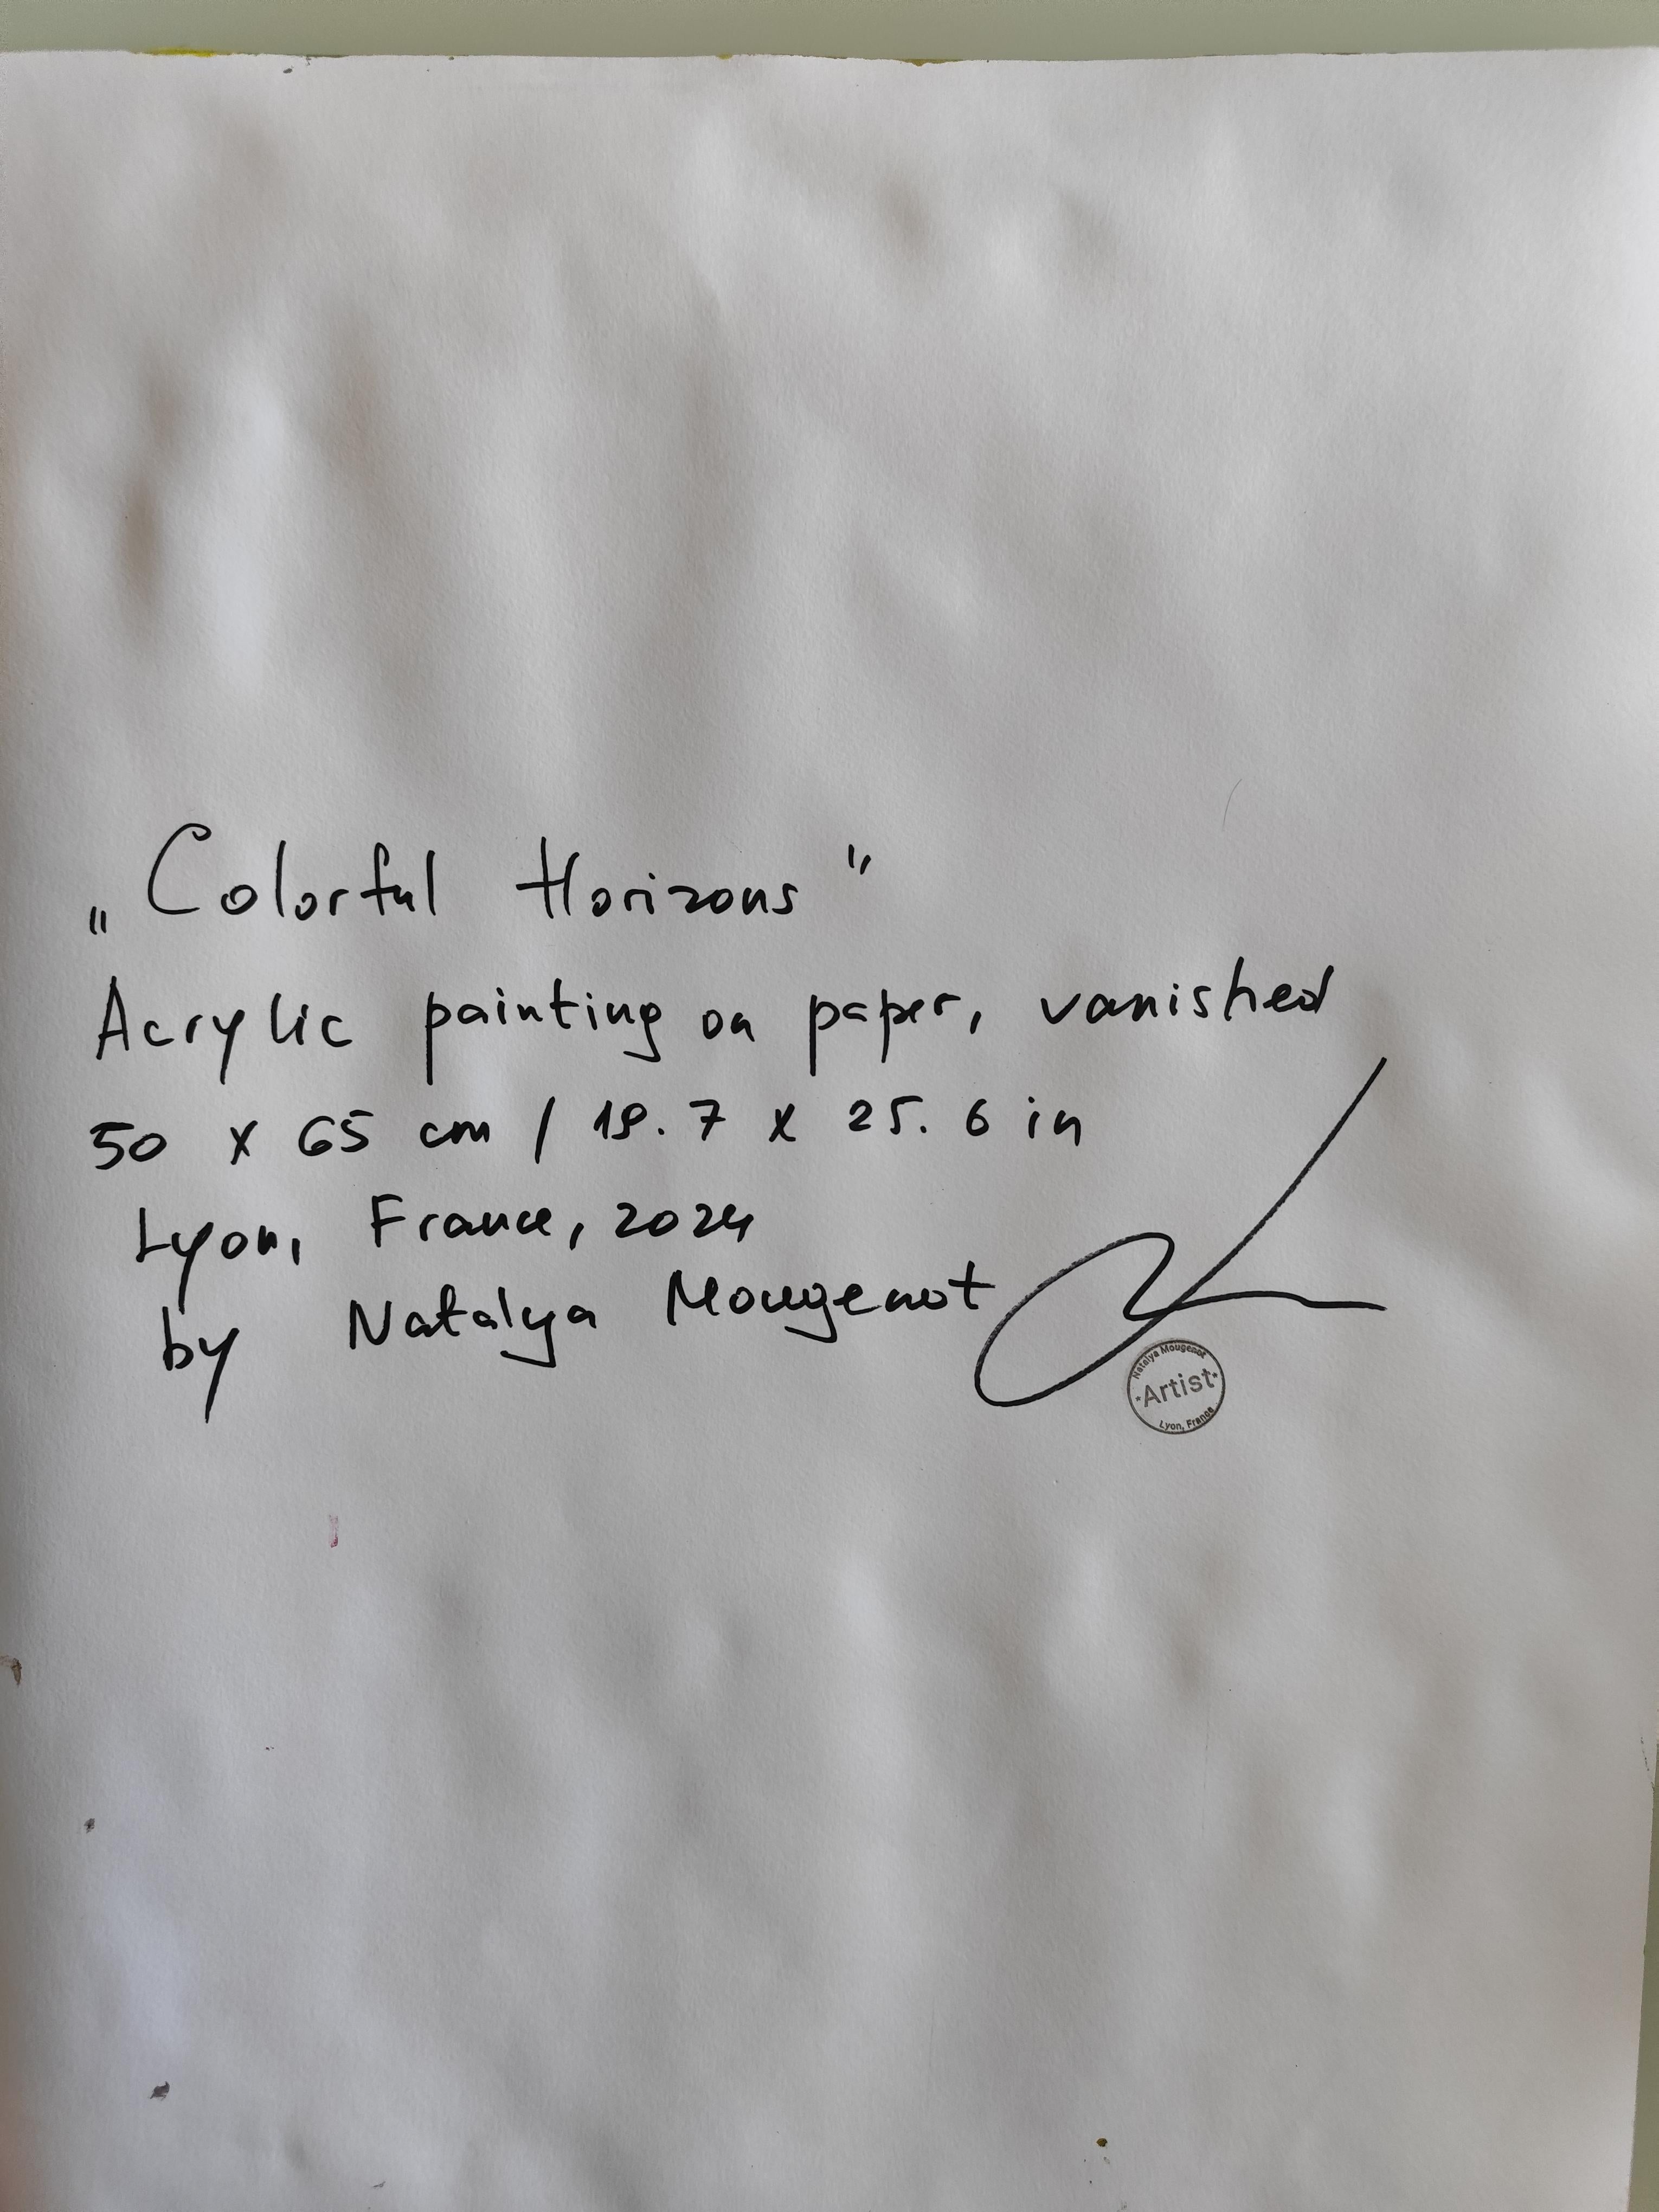 „Colorful Horizons"
Acrylic painting on paper, vanished
50 x 65 cm / 19.7 x 25.6 in
Lyon, France, 2024
by Natalya Mougenot
Natalya Mougenot
*Artist*
Lyon, France